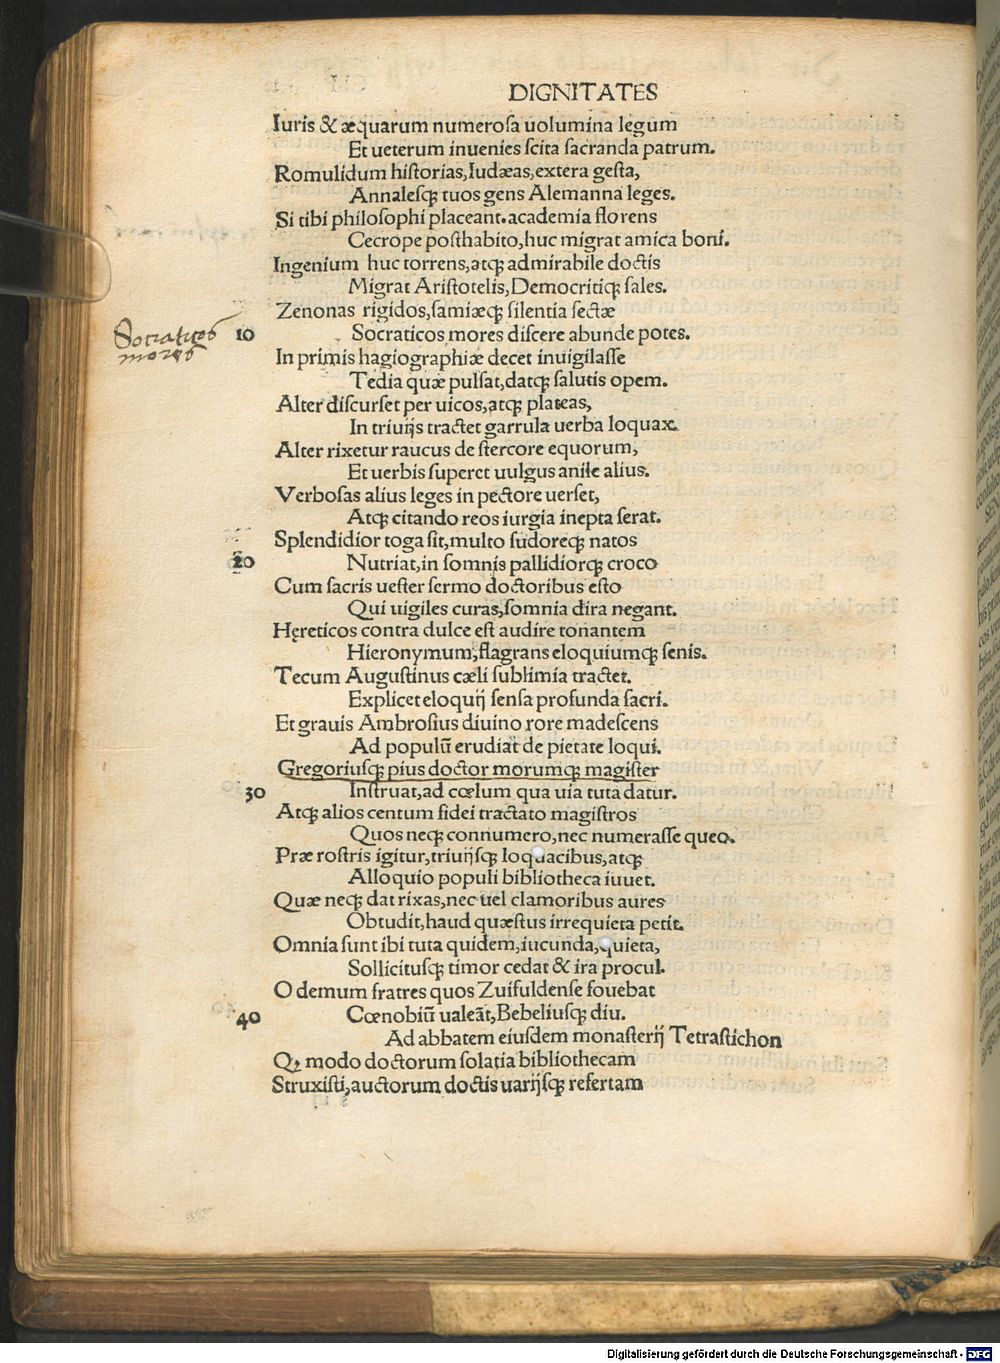 DIGNITATES
Iuris & æquarum numeroſa uolumina legum
Et ueterum inuenies ſcita ſacranda patrum.
Romulidum hiſtorias, Iudæas, extera geſta,
Annaleſqꝫ tuos gens Alemanna leges.
Si tibi philoſophi placeant. academia florens
Cecrope poſthabito, huc migrat amica boni.
Ingenium huc torrens, atqꝫ admirabile doctis
Migrat Ariſtotelis, Democritiqꝫ ſales.
Zenonas rigidos, ſamiæqꝫ ſilentia ſectæ
Socraticos mores
10 Socraticos mores diſcere abunde potes.
In primis hagiographiæ decet inuigilaſſe
Tedia quæ pulſat, datqꝫ ſalutis opem.
Alter diſcurſet per uicos, atqꝫ plateas,
In triuijs tractet garrula uerba loquax.
Alter rixetur raucus de ſtercore equorum,
Et uerbis ſuperet uulgus anile alius.
Verboſas alius leges in pectore uerſet,
Atqꝫ citando reos iurgia inepta ſerat.
Splendidior toga ſit, multo ſudoreqꝫ natos
20 Nutriat, in ſomnis pallidiorqꝫ croco
Cum ſacris ueſter ſermo doctoribus eſto
Qui uigiles curas, ſomnia dira negant.
Hęreticos contra dulce eſt audire tonantem
Hieronymum, flagrans eloquiumqꝫ ſenis.
Tecum Auguſtinus cæli ſublimia tractet.
Explicet eloquij ſenſa profunda ſacri.
Et grauis Ambroſius diuino rore madeſcens
Ad populū erudiat de pietate loqui.
Gregoriuſqꝫ pius doctor morumqꝫ magiſter
30 Inſtruat, ad cœlum qua uia tuta datur.
Atqꝫ alios centum fidei tractato magiſtros
Quos neqꝫ connumero, nec numeraſſe queo.
Præ roſtris igitur, triuijſqꝫ loquacibus, atqꝫ
Alloquio populi bibliotheca iuuet.
Quæ neqꝫ dat rixas, nec uel clamoribus aures
Obtudit, haud quæſtus irrequieta petit.
Omnia ſunt ibi tuta quidem, iucunda, quieta,
Sollicituſqꝫ timor cedat & ira procul.
O demum fratres quos Zuifuldenſe fouebat
40 Cœnobiū ualeāt, Bebeliuſqꝫ diu.
Ad abbatem eiuſdem monaſterij Tetraſtichon
Qꝫ modo doctorum ſolatia bibliothecam
Struxiſti, auctorum doctis uarijſqꝫ refertam
Digitalisierung gefördert durch die Deutsche Forschungsgemeinschaft - DFG